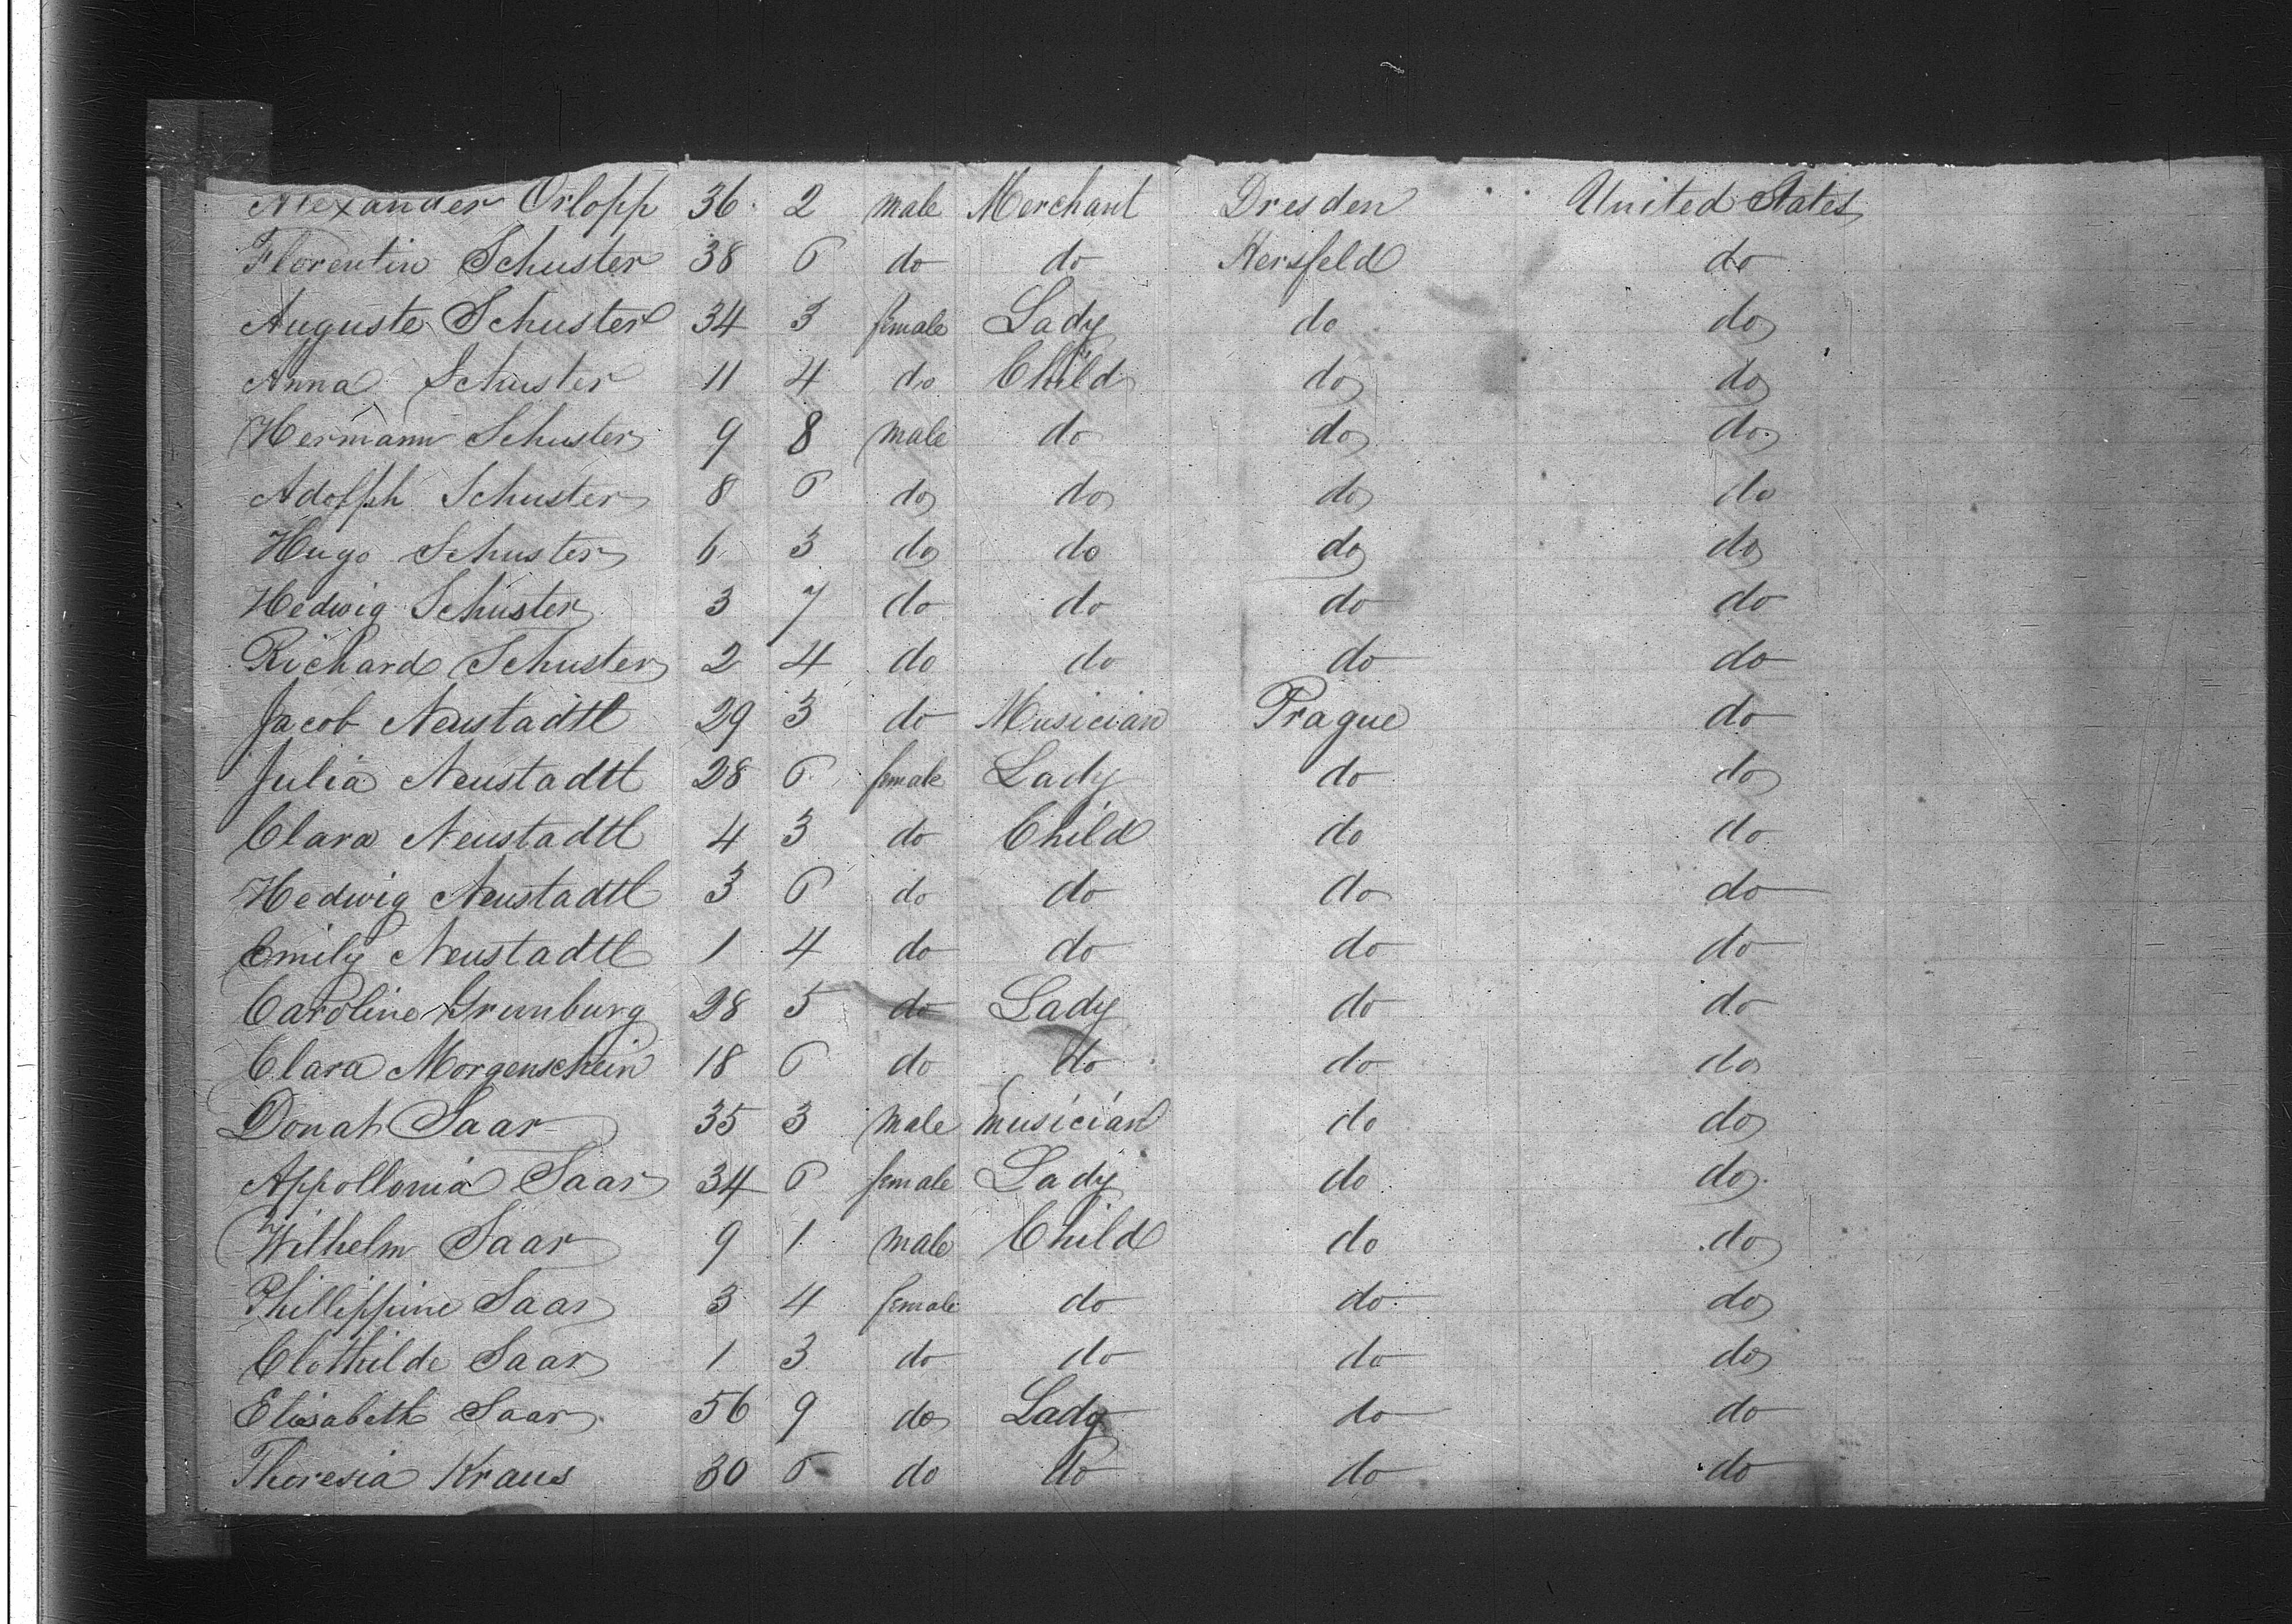 Alexander Orlopp 36 2 male Merchant Dresden United States
Florentin Schuster 38 6 do do Hersfeld do
Auguste Schuster 34 3 female Lady do do
Anna Schuster 11 4 do Child do do
Hermann Schuster 9 8 male do do do
Adolph Schuster 8 6 do do do do
Hugo Schuster 6 3 do do do do
Hedwig Schuster 3 7 do do do do
Richard Schuster 2 4 do do do do
Jacob Neustadtl 29 3 do Musician Prague do
Julia Neustadtl 28 6 female Lady do do
Clara Neustadtl 4 3 do Child do do
Hedwig Neustadtl 3 6 do do do do
Emily Neustadtl 1 4 do do do do
Caroline Grunburg 28 5 do Lady do do
Clara Morgenschein 18 6 do do do do
Donat Saar 35 3 male musician do do
Appollonia Saar 34 6 female Lady do do
Wilhelm Saar 9 1 male Child do do
Phillippine Saar 3 4 female do do do
Clothilde Saar 1 3 do do do do
Elisabeth Saar 56 9 do Lady do do
Theresia Kraus 30 6 do do do do